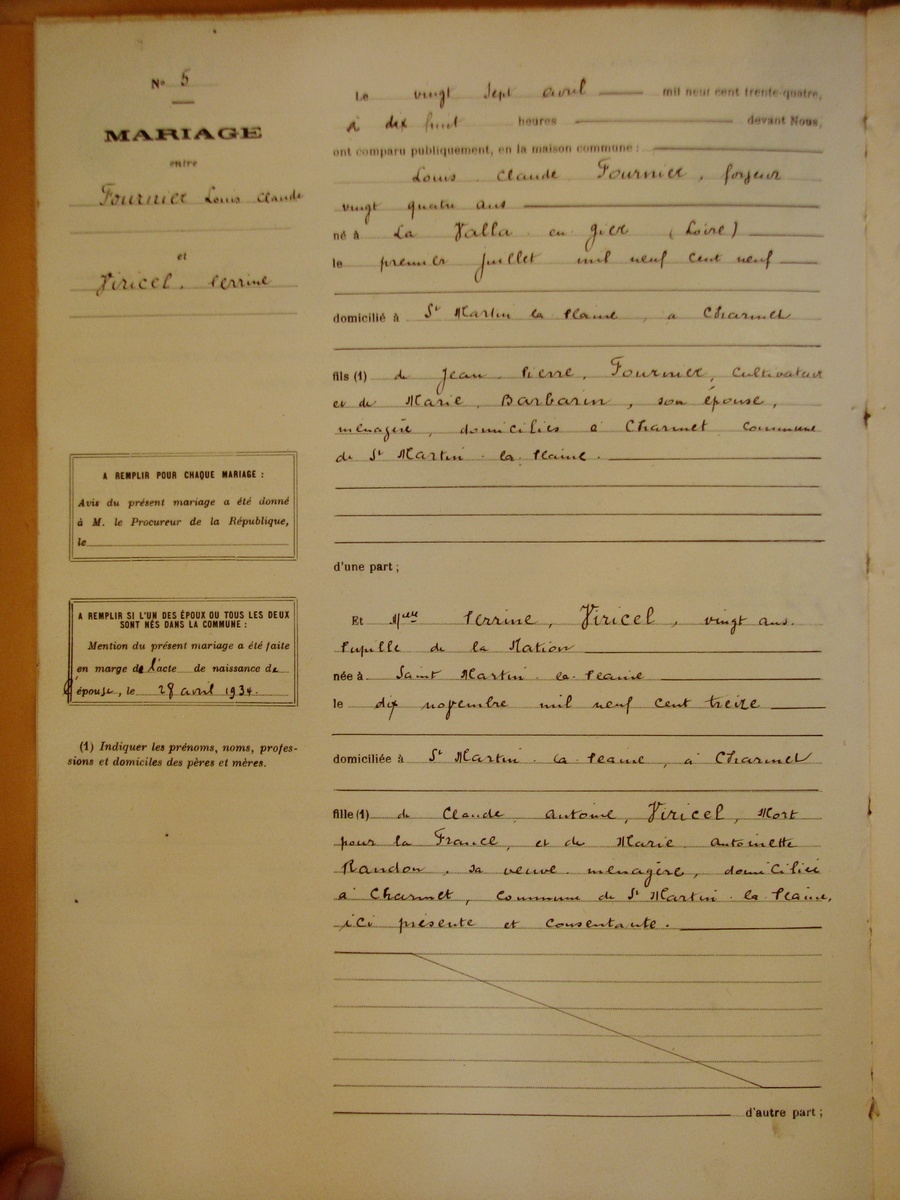 N° 5
MARIAGE
entre
Fournier Louis Claude
et
Viricel. Perrine
A REMPLIR POUR CHAQUE MARIAGE :
Avis du présent mariage a été donné
à M. le Procureur de la République,
le
A REMPLIR SI L'UN DES ÉPOUX OU TOUS LES DEUX
SONT NÉS DANS LA COMMUNE :
Mention du présent mariage a été faite
en marge de l'acte de naissance de
l'épouse, le 28 avril 1934.
(1) Indiquer les prénoms, noms, profes-
sions et domiciles des pères et mères.
Le vingt sept avril mil neuf cent trente-quatre,
à dix huit heures devant Nous,
ont comparu publiquement, en la maison commune :
Louis Claude Fournier, forgeur
vingt quatre ans
né à La Valla en Gier (Loire)
le premier juillet mil neuf cent neuf
domicilié à St Martin la Plaine, à Charmet
fils (1) de Jean Pierre, Fournier, cultivateur
et de Marie, Barbarin, son épouse,
ménagère, domiciliés à Charmet commune
de St Martin-la-Plaine.
d'une part ;
Et Melle Perrine, Viricel, vingt ans.
Pupille de la Nation
née à Saint Martin-la-Plaine
le dix novembre mil neuf cent treize
domiciliée à St Martin-la-Plaine, à Charmet
fille (1) de Claude, Antoine, Viricel, Mort
pour la France, et de Marie Antoinette
Randon, sa veuve ménagère, domiciliée
à Charmet, commune de St Martin-la-Plaine,
ici présente et consentante.
d'autre part ;